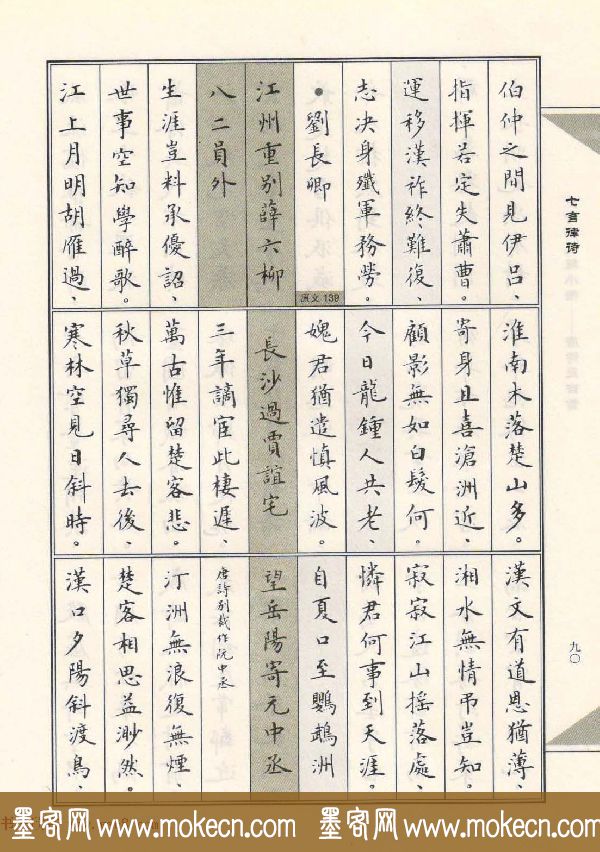 伯仲之間見伊吕、
指揮若定失蕭曹。
運移漢祚終難復、
志決身殲軍務勞。
●劉長卿
原文 139
江州重别薛六柳
八二員外
生涯豈料承優詔、
世事空知學醉歌。
江上月明胡雁過、
淮南木落楚山多。
寄身且喜滄洲近、
顧影無如白髮何。
今日龍鍾人共老、
媿君猶遣慎風波。
長沙過賈誼宅
三年謫宦此棲遲、
萬古惟留楚客悲。
秋草獨尋人去後、
寒林空見日斜時。
漢文有道恩猶薄、
湘水無情弔豈知。
寂寂江山摇落處、
憐君何事到天涯。
自夏口至鸚鵡洲
望岳陽寄元中丞
唐詩别裁作阮中丞
汀洲無浪復無煙、
楚客相思益渺然。
漢口夕陽斜渡鳥、
七言律诗
九〇
墨客网 www.mokecn.com 墨客网 www.mokecn.com